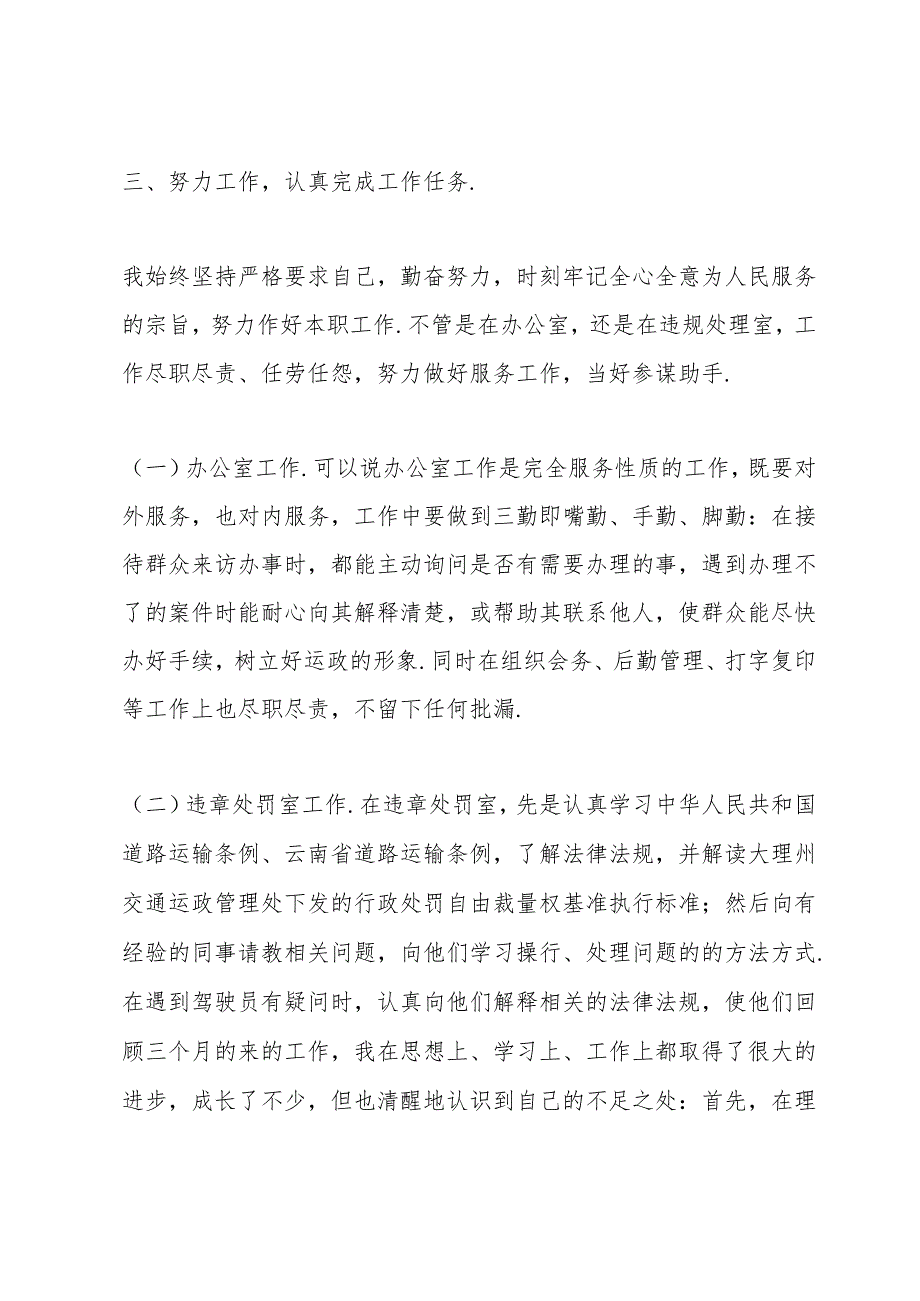 三、努力工作，认真完成工作任务.
我始终坚持严格要求自己，勤奋努力，时刻牢记全心全意为人民服务
的宗旨，努力作好本职工作.不管是在办公室，还是在违规处理室，工
作尽职尽责、任劳任怨，努力做好服务工作，当好参谋助手.
（一）办公室工作.可以说办公室工作是完全服务性质的工作，既要对
外服务，也对内服务，工作中要做到三勤即嘴勤、手勤、脚勤：在接
待群众来访办事时，都能主动询问是否有需要办理的事，遇到办理不
了的案件时能耐心向其解释清楚，或帮助其联系他人，使群众能尽快
办好手续，树立好运政的形象.同时在组织会务、后勤管理、打字复印
等工作上也尽职尽责，不留下任何批漏.
（二）违章处罚室工作.在违章处罚室，先是认真学习中华人民共和国
道路运输条例、云南省道路运输条例，了解法律法规，并解读大理州
交通运政管理处下发的行政处罚自由裁量权基准执行标准；然后向有
经验的同事请教相关问题，向他们学习操行、处理问题的的方法方式.
在遇到驾驶员有疑问时，认真向他们解释相关的法律法规，使他们回
顾三个月的来的工作，我在思想上、学习上、工作上都取得了很大的
进步，成长了不少，但也清醒地认识到自己的不足之处：首先，在理